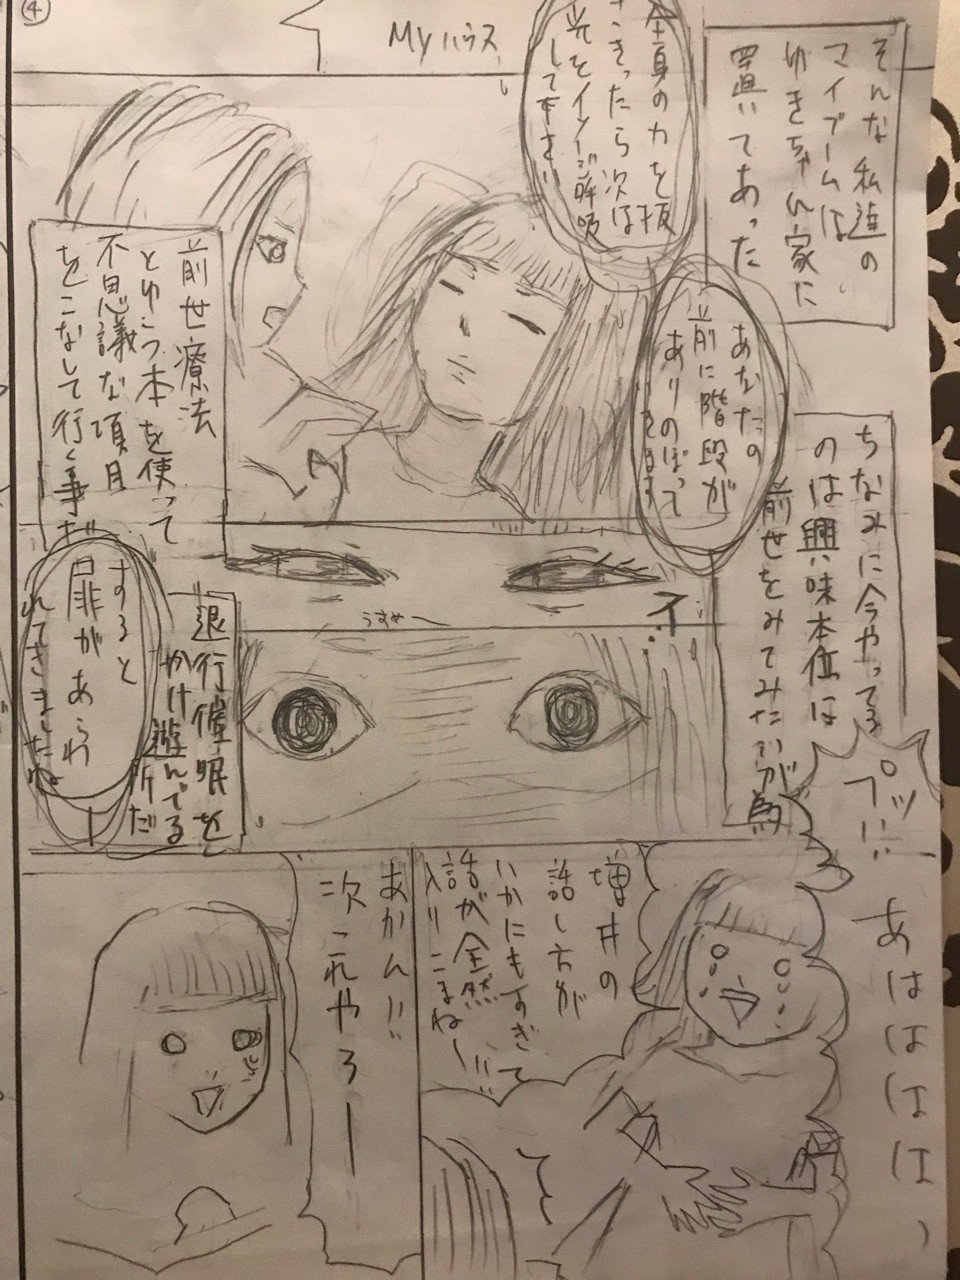 ④
Myハウス
そんな私達の
マイブームは
ゆきちゃん家に
置いてあった
全身の力を抜
ききったら次は
光をイメージ呼吸
して下さい
前世療法
とゆう本を使って
不思議な項目
をこなして行く事だ
あなたの
前に階段が
ありのぼって
ちなみに今やってる
のは興味本位は
前世をみてみたいが為
退行催眠を
かけ遊んでる
所だ
すると
扉があらわ
れてきましたね
うすめ〜
プッ!!
あはははは、
増井の
話し方が
いかにもすぎて
話が全然
入りこまねー!!!
て
あかん!!
次これやろー